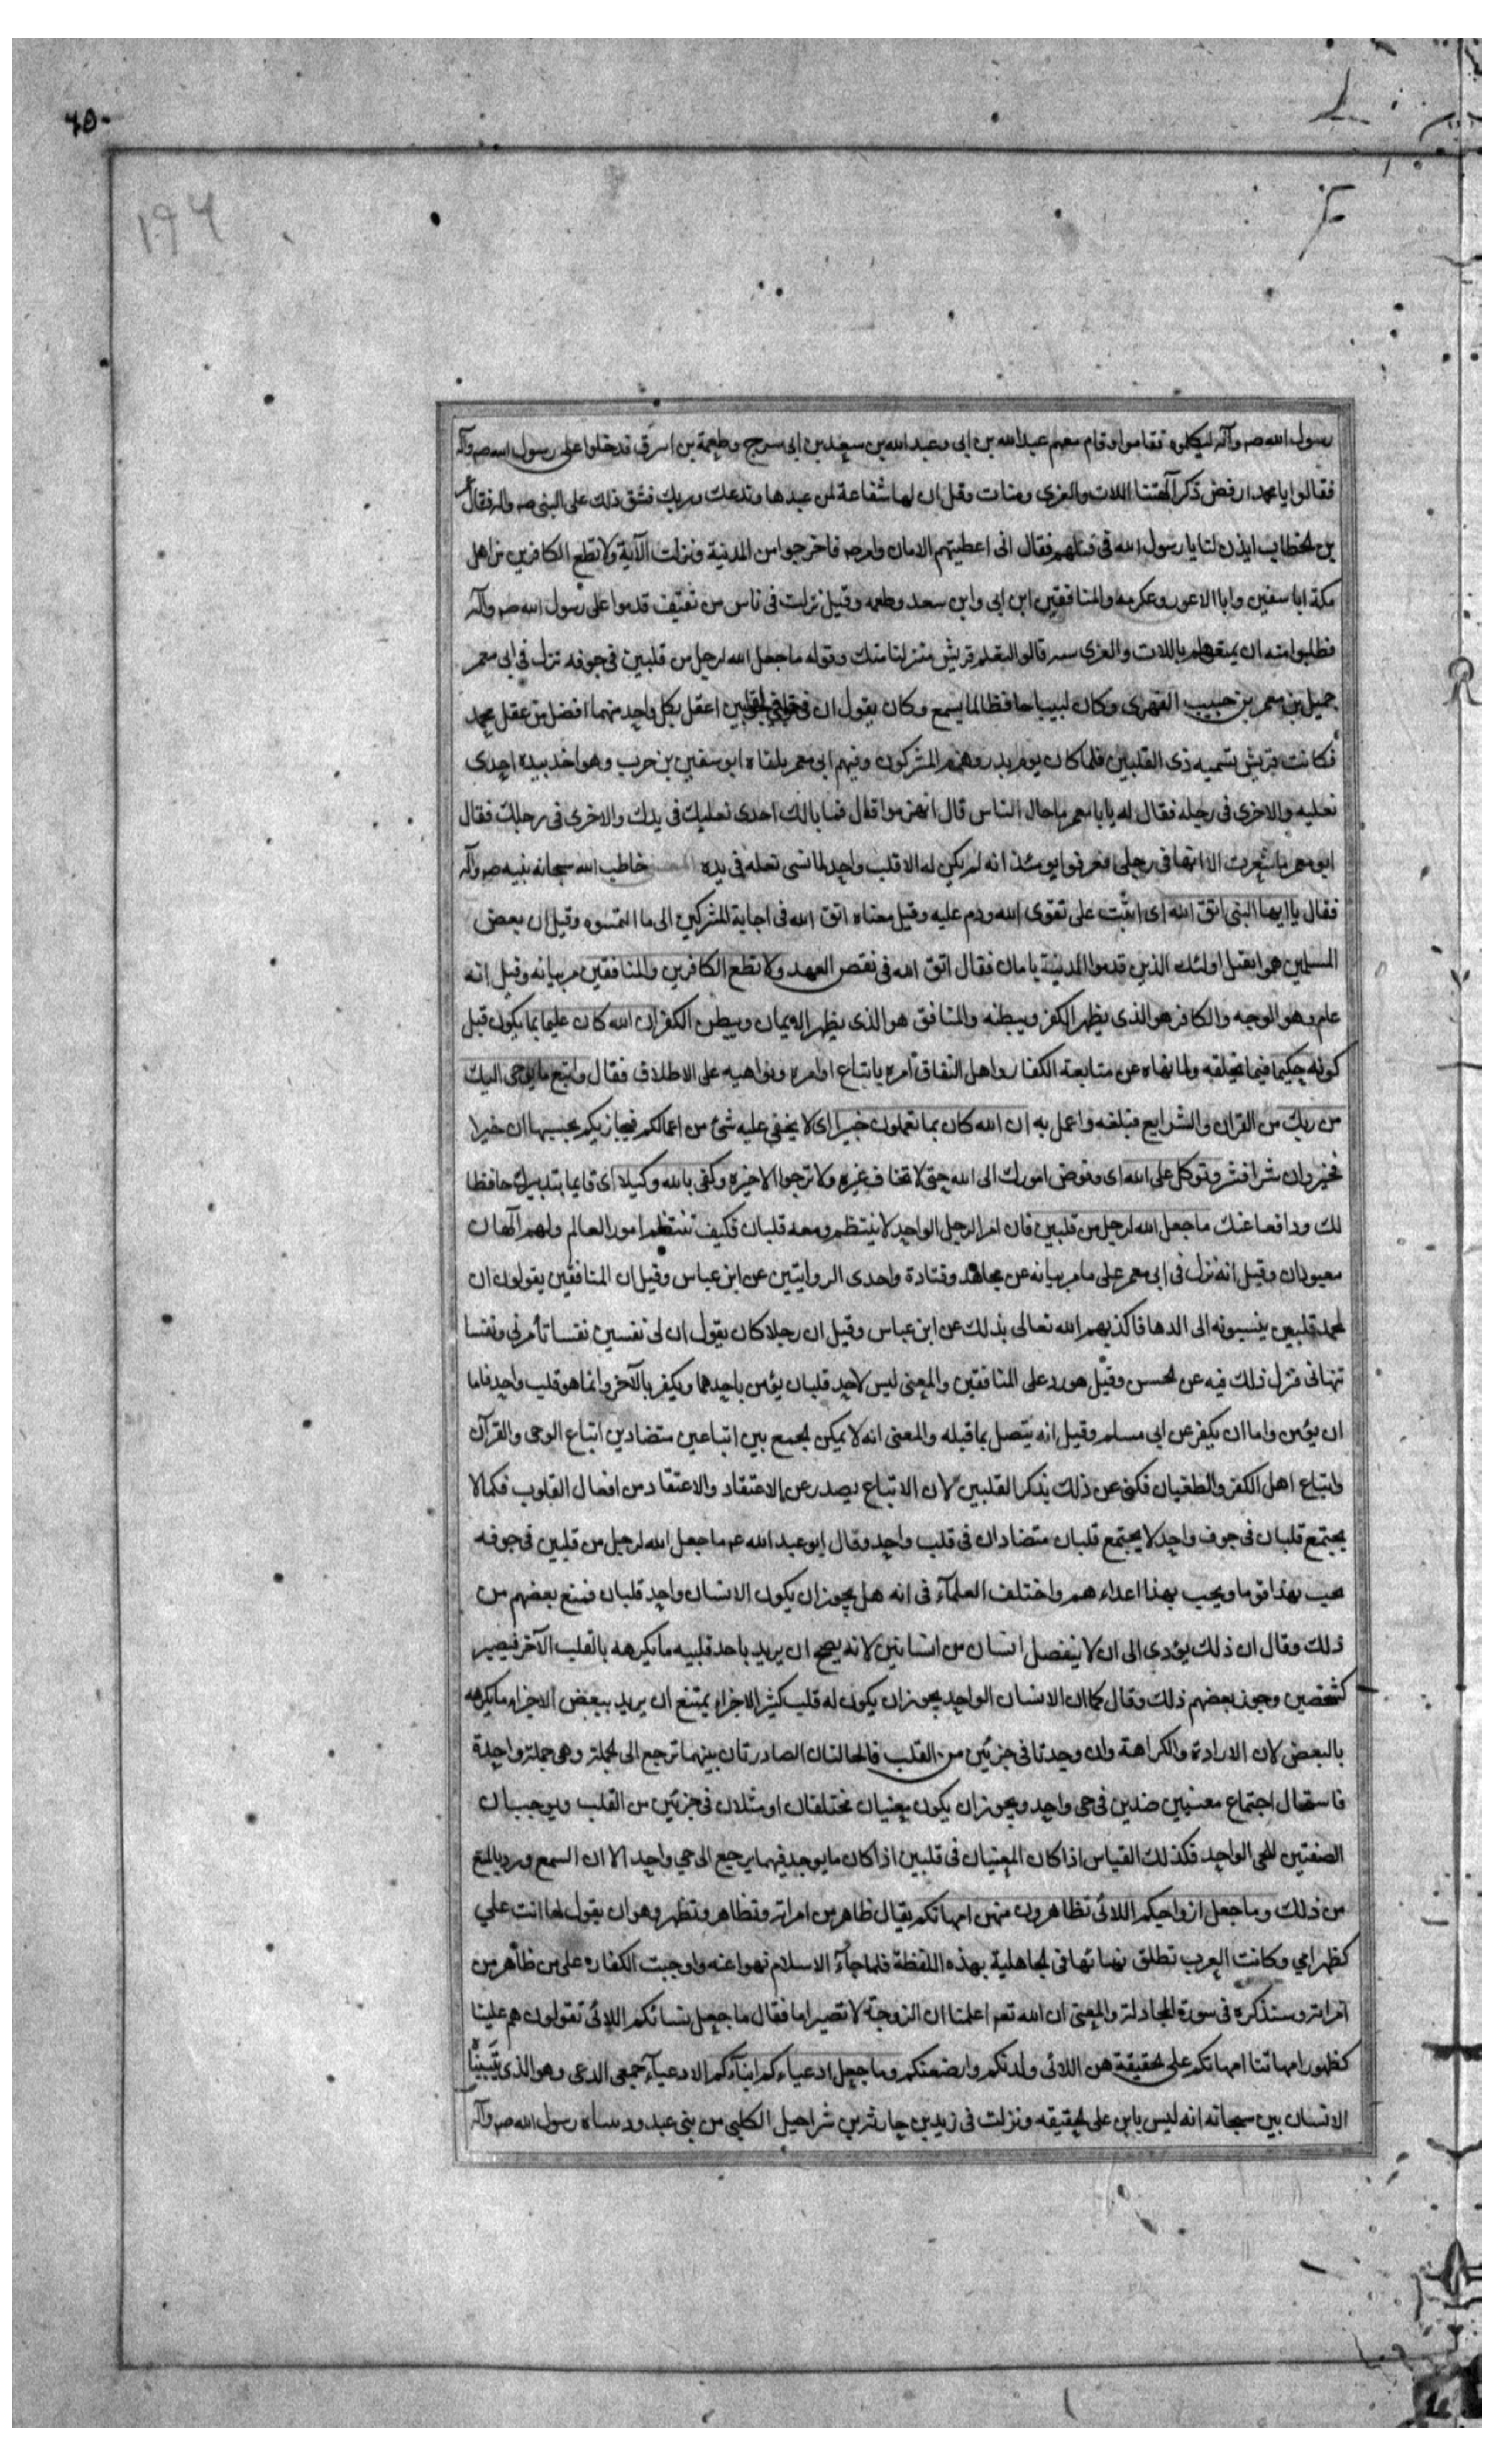 ٦٥٠
١٩٦
رسول الله صم وآله ليكلموه فقاموا وقام معهم عبد الله بن ابى وعبد الله بن سعد بن ابى سرح وطعمة بن ابيرق فدخلوا على رسول الله صم وآله
فقالوا يا محمد ارفض ذكر آلهتنا اللات والعزى ومنات وقل ان لها شفاعة لمن عبدها وندعك وربك فشق ذلك على النبى صم واله فقال عمر
بن الخطاب ايذن لنا يا رسول الله فى قتلهم فقال انى اعطيتهم الامان وامر صم فاخرجوا من المدينة ونزلت الآية ولا تطع الكافرين من اهل
مكة ابا سفين وابا الاعور وعكرمه والمنافقين ابن ابى وابن سعد وطعمه وقيل نزلت فى ناس من ثقيف قدموا على رسول الله صم وآله
فطلبوا منه ان يمتعهم باللات والعزى سنه قالوا لتعلم قريش منزلتنا منك وقوله ما جعل الله لرجل من قلبين فى جوفه نزل فى ابى معمر
جميل بن معمر بن حبيب الفهرى وكان لبيبا حافظا لما يسمع وكان يقول ان فى جوفى لقلبين اعقل بكل واحد منهما افضل من عقل محمد
فكانت قريش تسميه ذى القلبين فلما كان يوم بدر وهزم المشركون وفيهم ابى معمر يلقاه ابو سفين بن حرب وهو اخذ بيده احدى
نعليه والاخرى فى رجله فقال له يا با معمر ما حال الناس قال انهزموا قال فما بالك احدى نعليك فى يدك والاخرى فى رجلك فقال
ابو معمر ما شعرت الا انها فى رجلى فعرفوا يومئذ انه لم يكن له الا قلب واحد لما نسى نعله فى يده خاطب الله سبحانه نبيه صم وآله
فقال يا ايها النبى اتق الله اى اثبت على تقوى الله ودم عليه وقيل معناه اتق الله فى اجابة المشركين الى ما التمسوه وقيل ان بعض
المسلمين هموا بقتل اولئك الذين قدموا المدينة بامان فقال اتق الله فى نقص العهد ولا تطع الكافرين والمنافقين مر بيانه وقيل انه
عام وهو الوجه والكافر هو الذى يظهر الكفر ويبطنه والمنافق هو الذى يظهر الايمان ويبطن الكفر ان الله كان عليما بما يكون قبل
كونه حكيما فيما يخلقه ولما نهاه عن متابعة الكفار واهل النفاق امره باتباع اوامره ونواهيه على الاطلاق فقال واتبع ما يوحى اليك
من ربك من القرآن والشرايع فبلغه واعمل به ان الله كان بما تعملون خبيرا اى لا يخفى عليه شئ من اعمالكم فيجازيكم بحسبها ان خيرا
فخير وان شرا فشر وتوكل على الله اى وفوض امورك الى الله حتى لا تخاف غيره ولا ترجوا الا خيره وكفى بالله وكيلا اى قايما بتدبيرك حافظا
لك ودافعا عنك ما جعل الله لرجل من قلبين فان امر الرجل الواحد لا ينتظم ومعه قلبان فكيف تنتظم امور العالم ولهم آلهان
معبودان وقيل انه نزل فى ابى معمر على ما مر بيانه عن مجاهد وقتادة واحدى الروايتين عن ابن عباس وقيل ان المنافقين يقولون ان
لمحمد قلبين ينسبونه الى الدها فاكذبهم الله تعالى بذلك عن ابن عباس وقيل ان رجلا كان يقول ان لى نفسين نفسا تأمرنى ونفسا
تنهانى فنزل ذلك فيه عن الحسن وقيل هو رد على المنافقين والمعنى ليس لاحد قلبان يؤمن باحدهما ويكفر بالآخر وانما هو قلب واحد فاما
ان يؤمن واما ان يكفر عن ابى مسلم وقيل انه يتصل بما قبله والمعنى انه لا يمكن الجمع بين اتباعين متضادين اتباع الوحى والقرآن
واتباع اهل الكفر والطغيان فكنى عن ذلك بذكر القلبين لان الاتباع يصدر عن الاعتقاد والاعتقاد من افعال القلوب فكما لا
يجتمع قلبان فى جوف واحد لا يجتمع قلبان متضادان فى قلب واحد وقال ابو عبد الله عم ما جعل الله لرجل من قلبين فى جوفه
يحب بهذا قوما ويحب بهذا اعداءهم واختلف العلمآء فى انه هل يجوز ان يكون الانسان واحد قلبان فمنع بعضهم من
ذلك وقال ان ذلك يؤدى الى ان لا ينفصل انسان من انسانين لانه يصح ان يريد باحد قلبيه ما يكرهه بالقلب الآخر فيصير
كشخصين وجوز بعضهم ذلك وقال كما ان الانسان الواحد يجوز ان يكون له قلب كثير الاجزاء يمتنع ان يريد ببعض الاجزاء ما يكرهه
بالبعض لان الارادة والكراهة وان وجدتا فى جزئين من القلب فالحالتان الصادرتان بينهما ترجع الى الجملة وهى جملة واحدة
فاستحال اجتماع معنيين ضدين فى حى واحد ويجوز ان يكون معنيان مختلفان او مثلان فى جزئين من القلب ويوجبان
الصفتين للحى الواحد فكذلك القياس اذا كان المعنيان فى قلبين اذا كان ما يوجد فيهما يرجع الى حى واحد الا ان السمع ورد بالمنع
من ذلك وما جعل ازواجكم اللائى تظاهرون منهن امهاتكم يقال ظاهر من امراته وتظاهر وتظهر وهو ان يقول لها انت على
كظهر امى وكانت العرب تطلق نساتها فى الجاهلية بهذه اللفظة فلما جآء الاسلام نهوا عنه واوجبت الكفاره على من ظاهر من
امراته وسنذكره فى سورة المجادلة والمعنى ان الله تعم اعلمنا ان الزوجة لا تصير اما فقال ما جعل نسائكم اللائى تقولون هم علينا
كظهور امهاتنا امهاتكم على الحقيقة هن اللائى ولدنكم وارضعنكم وما جعل ادعياءكم ابناءكم الادعيآء جمع الدعى وهو الذى يتبنا
الانسان بين سبحانه انه ليس بابن على الحقيقه ونزلت فى زيد بن حارثه بن شراحيل الكلبى من بنى عبد ود سباه رسول الله صم وآله